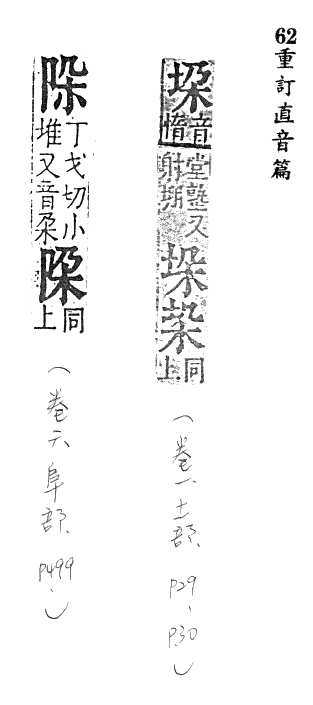 62重訂直音篇
垜音惰堂塾又射堋垛㙐同上
（卷一土部、P29、P30）
陊丁戈切小堆又音朶䧔同上
（卷六阜部、P499、）